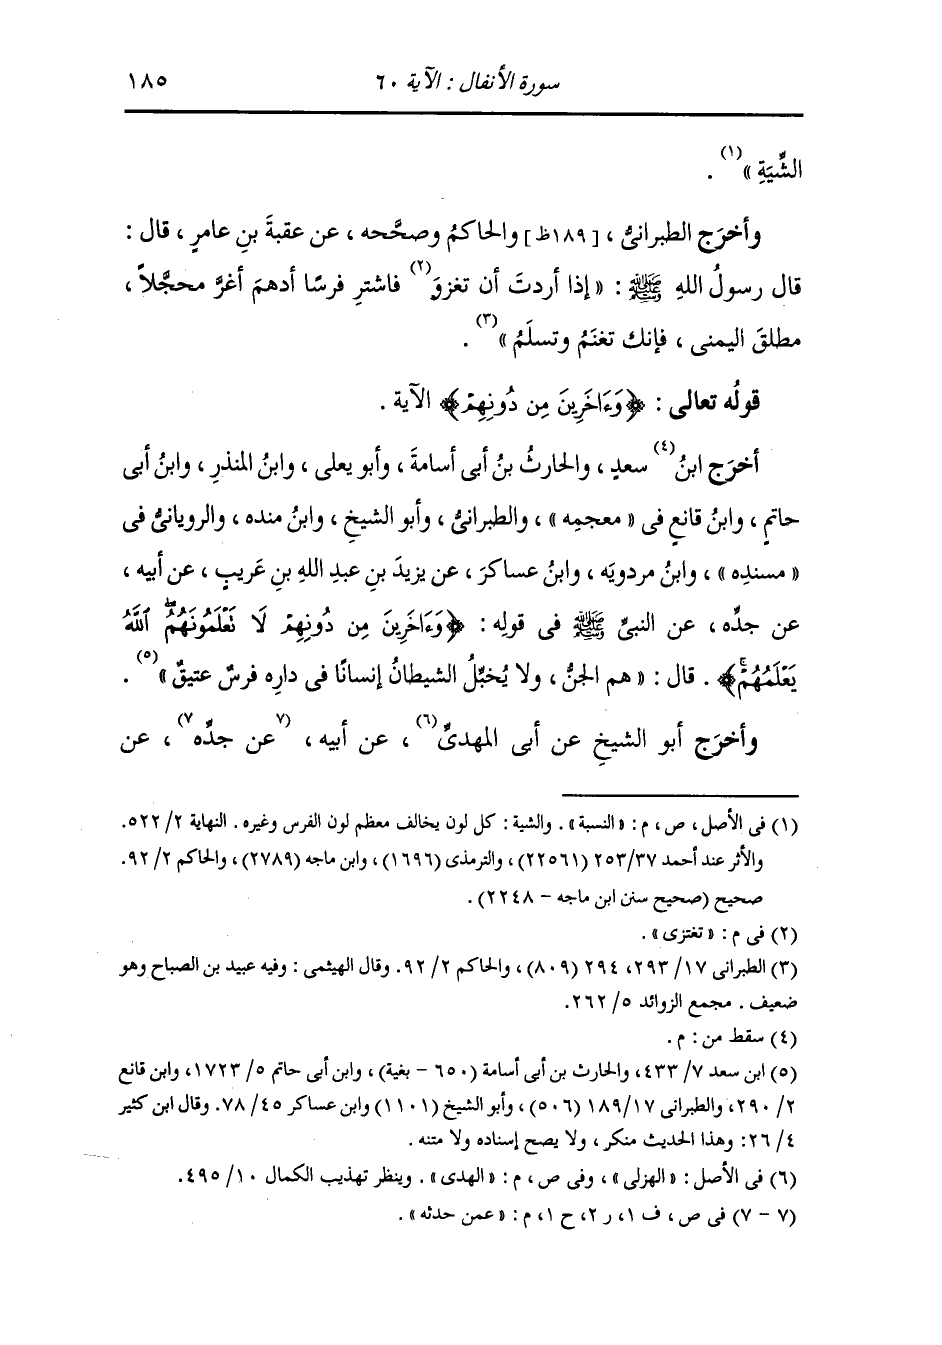 سورة الأنفال : الآية ٦٠ ١٨٥
الشِّيَةِ »(١) .
وأخرَج الطبرانىُّ ، [١٨٩ظ] والحاكمُ وصحَّحه ، عن عقبةَ بنِ عامرٍ ، قال :
قال رسولُ اللهِ ﷺ : « إذا أردتَ أن تغزوَ(٢) فاشترِ فرسًا أدهمَ أغرَّ محجَّلاً ،
مطلقَ اليمنى ، فإنك تغنَمُ وتسلَمُ »(٣) .
قولُه تعالى : ﴿وَءَاخَرِينَ مِن دُونِهِمْ﴾ الآية .
أخرَج ابنُ(٤) سعدٍ ، والحارثُ بنُ أبى أسامةَ ، وأبو يعلى ، وابنُ المنذرِ ، وابنُ أبى
حاتمٍ ، وابنُ قانعٍ فى « معجمِه » ، والطبرانىُّ ، وأبو الشيخِ ، وابنُ منده ، والرويانىُّ فى
« مسندِه » ، وابنُ مردويَه ، وابنُ عساكرَ ، عن يزيدَ بنِ عبدِ اللهِ بنِ عَريبٍ ، عن أبيه ،
عن جدِّه ، عن النبىِّ ﷺ فى قولِه : ﴿وَءَاخَرِينَ مِن دُونِهِمْ لَا تَعْلَمُونَهُمُۖ ٱللَّهُ
يَعْلَمُهُمْۚ﴾ . قال : « هم الجنُّ ، ولا يُخبِّلُ الشيطانُ إنسانًا فى دارِه فرسٌ عتيقٌ »(٥) .
وأخرَج أبو الشيخِ عن أبى المهدىِّ(٦) ، عن أبيه ، (٧عن جدِّه٧) ، عن
(١) فى الأصل ، ص ، م : « النسبة » . والشية : كل لون يخالف معظم لون الفرس وغيره . النهاية ٢/ ٥٢٢.
والأثر عند أحمد ٢٥٣/٣٧ (٢٢٥٦١) ، والترمذى (١٦٩٦) ، وابن ماجه (٢٧٨٩) ، والحاكم ٢/ ٩٢.
صحيح (صحيح سنن ابن ماجه – ٢٢٤٨) .
(٢) فى م : « تغتزى » .
(٣) الطبرانى ١٧/ ٢٩٣، ٢٩٤ (٨٠٩) ، والحاكم ٢/ ٩٢. وقال الهيثمى : وفيه عبيد بن الصباح وهو
ضعيف . مجمع الزوائد ٥/ ٢٦٢.
(٤) سقط من : م .
(٥) ابن سعد ٧/ ٤٣٣، والحارث بن أبى أسامة (٦٥٠ – بغية) ، وابن أبى حاتم ٥/ ١٧٢٣، وابن قانع
٢/ ٢٩٠، والطبرانى ١٨٩/١٧ (٥٠٦) ، وأبو الشيخ (١١٠١) وابن عساكر ٤٥/ ٧٨. وقال ابن كثير
٤/ ٢٦: وهذا الحديث منكر ، ولا يصح إسناده ولا متنه .
(٦) فى الأصل : « الهزلى » ، وفى ص ، م : « الهدى » . وينظر تهذيب الكمال ١٠/ ٤٩٥.
(٧ – ٧) فى ص ، ف ١، ر ٢، ح ١، م : « عمن حدثه » .